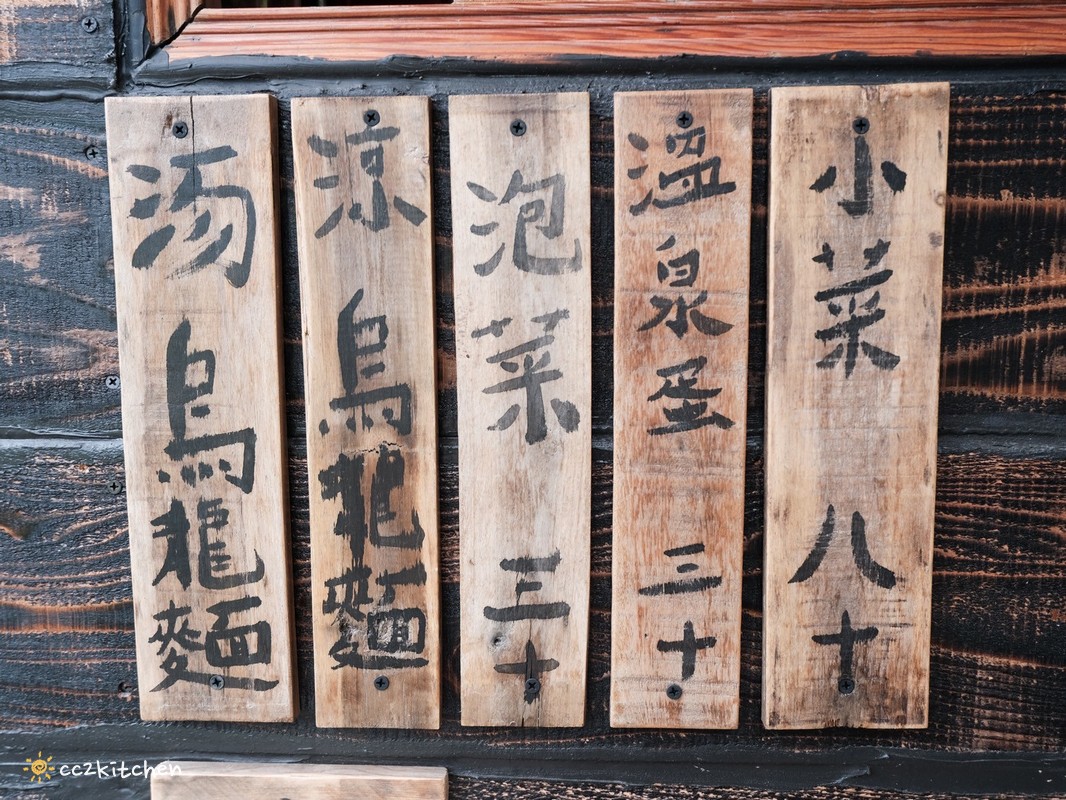 小菜 八十
溫泉蛋 三十
泡菜 三十
涼烏龍麵
湯烏龍麵
cc2kitchen